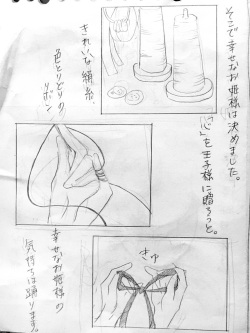 そこで幸せなお姫様は決めました。
「心」を王子様に贈ろうと。
きれいな絹糸、
色とりどりの
リボン
きゅ
幸せなお姫様の
気持ちは踊ります。